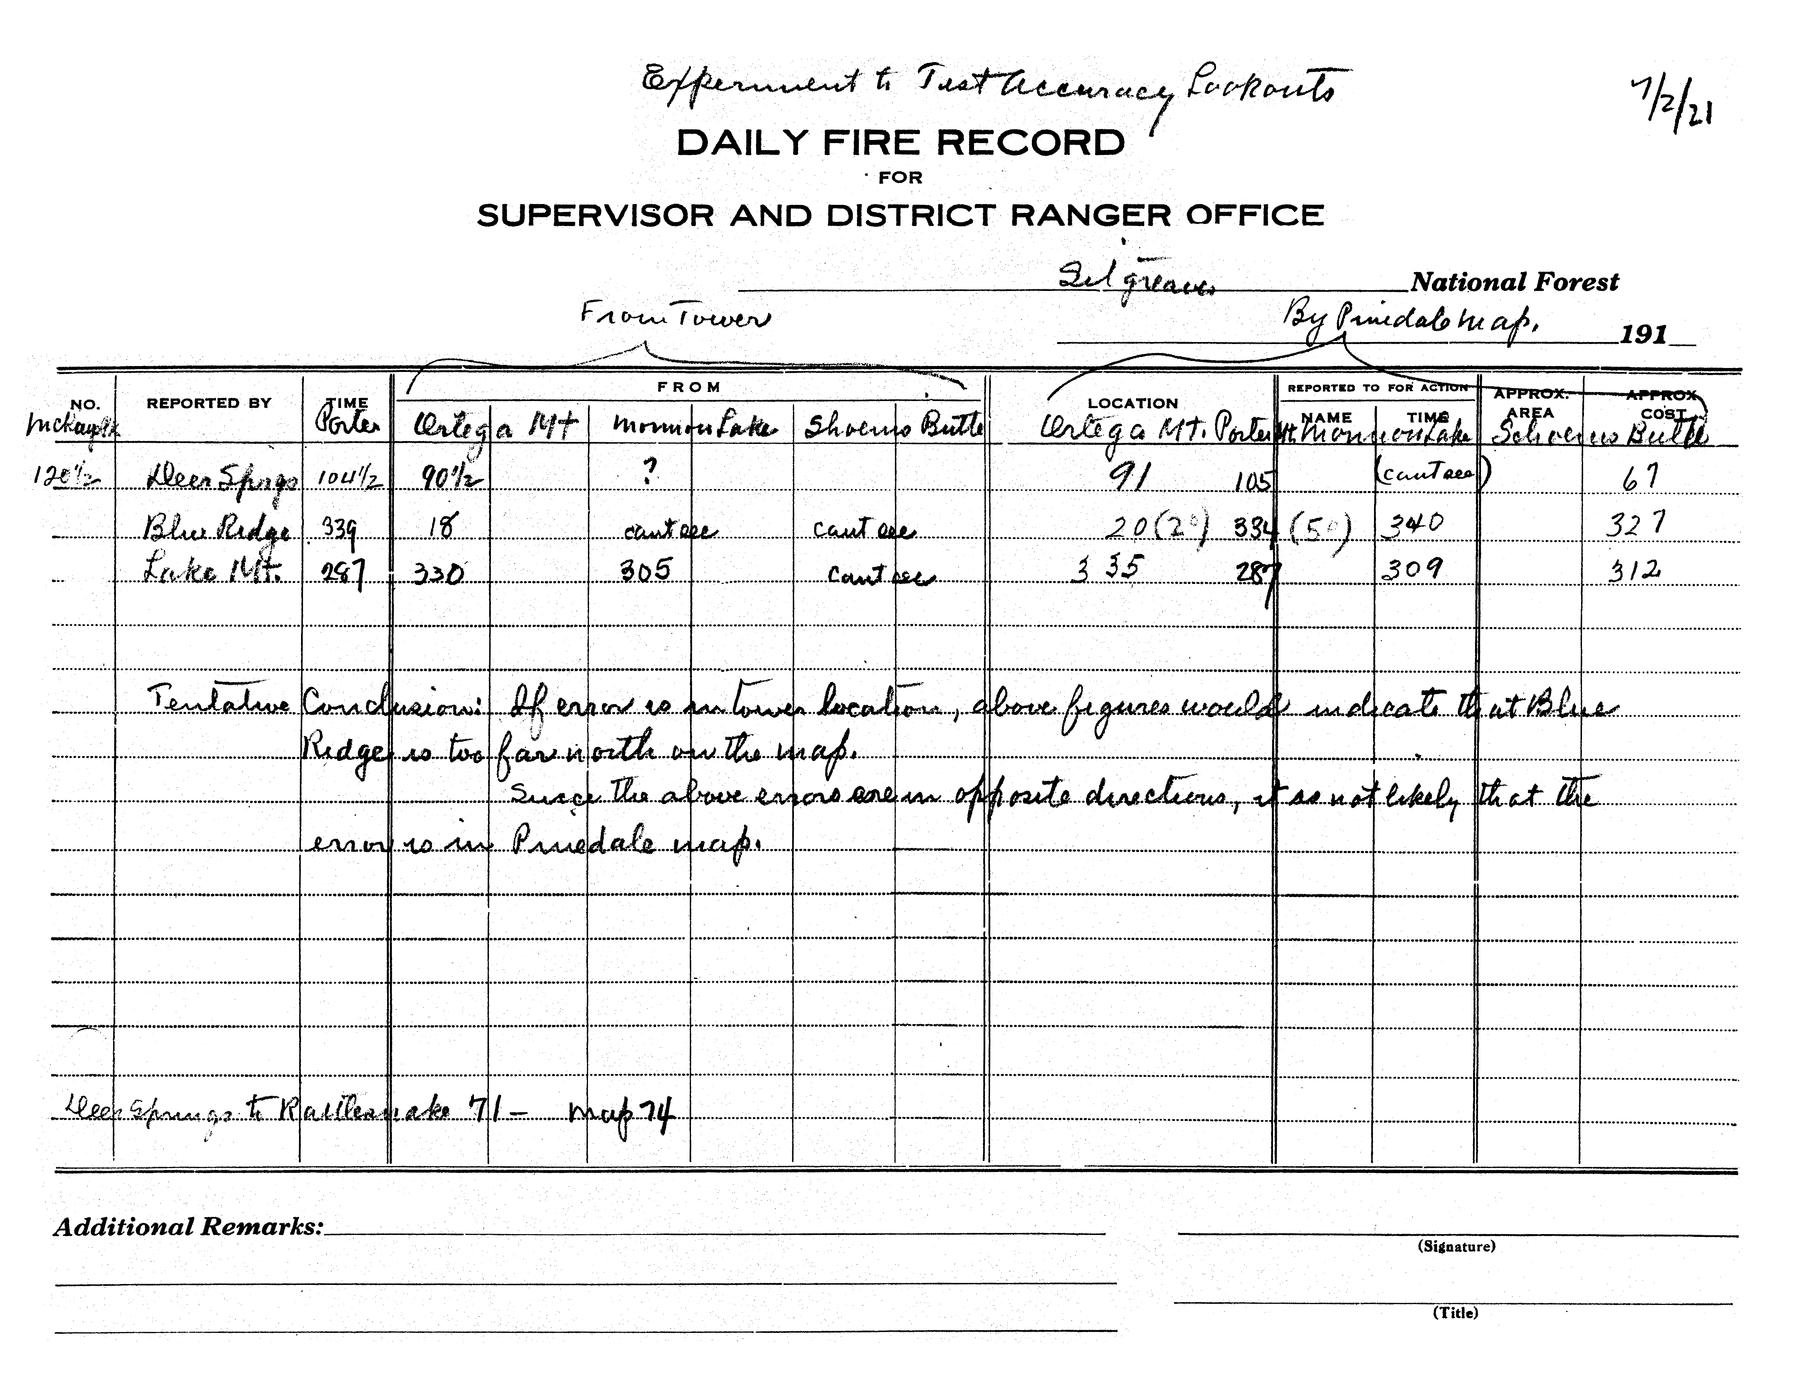 Experiment to Test Accuracy Lookouts
7/2/21
DAILY FIRE RECORD
FOR
SUPERVISOR AND DISTRICT RANGER OFFICE
Sitgreaves National Forest
From Tower
By Pinedale Map. 191
NO. REPORTED BY TIME FROM LOCATION REPORTED TO FOR ACTION NAME TIME APPROX. AREA APPROX. COST
Porter Ortega Mt Mormon Lake Shoens Butte Ortega Mt. Porter Mt. Mormon Lake Schoens Butte
120½ Deer Springs 104½ 90½ ? 91 105 (cant see) 67
Blue Ridge 339 18 cant see cant see 20 (2°) 334 (5°) 340 327
Lake Mt. 287 330 305 cant see 335 287 309 312
Tentative Conclusion: If error is in tower location, above figures would indicate that Blue
Ridge is too far north on the map.
Since the above errors are in opposite directions, it is not likely that the
error is in Pinedale map.
Deer Springs to Rattlesnake 71 – Map 74
Additional Remarks:
(Signature)
(Title)